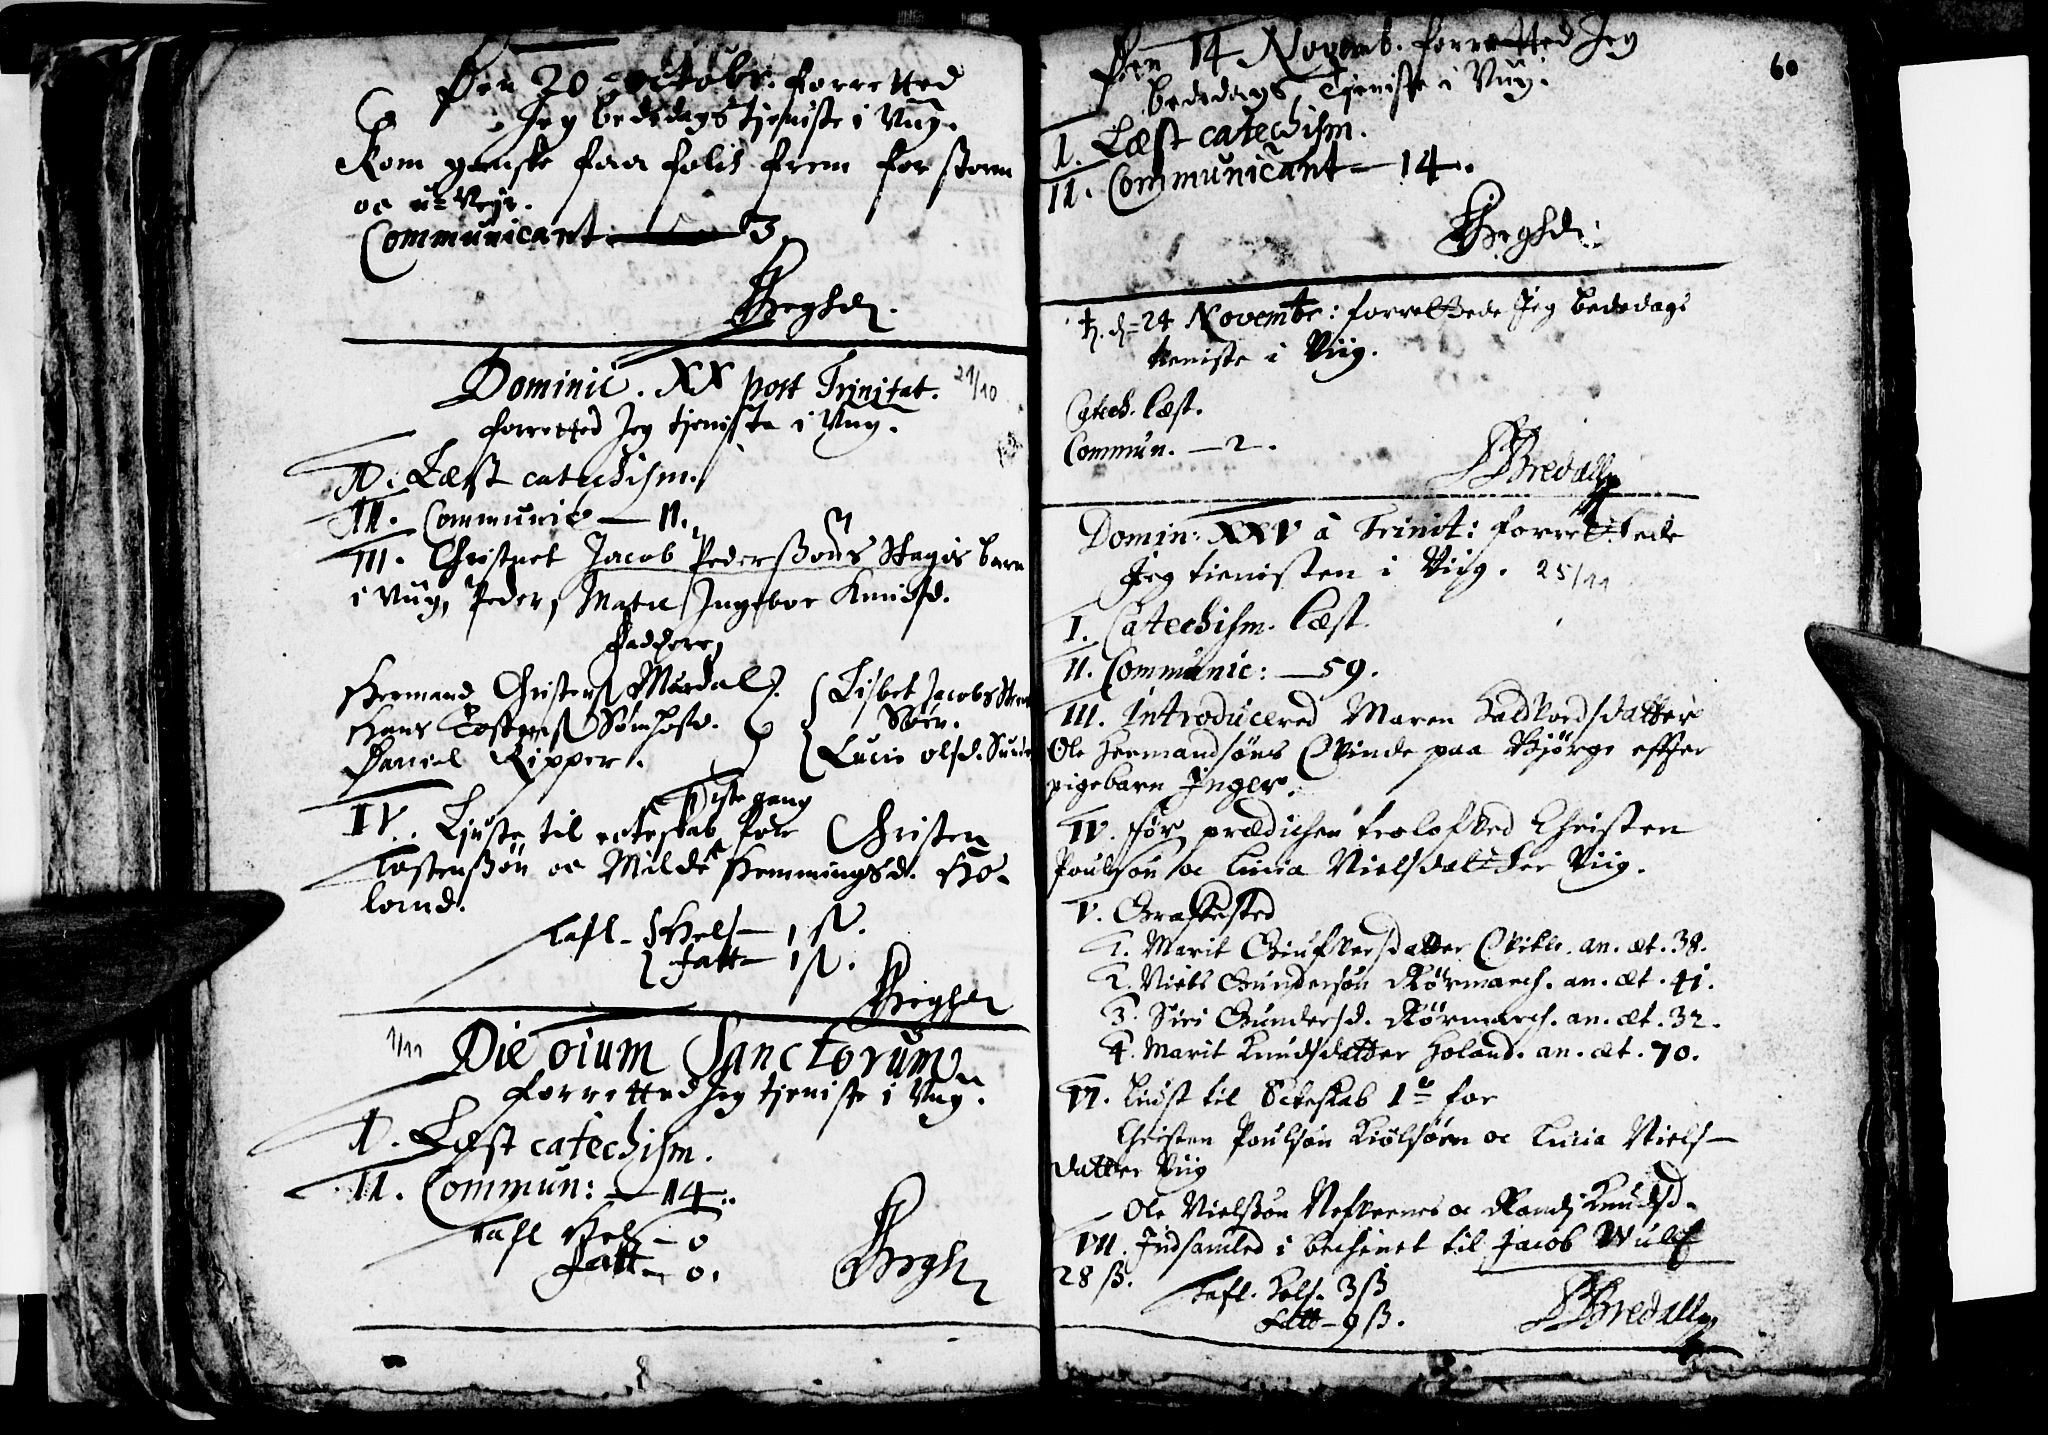 Den 20 Octobr. forretted
Jeg bededags tjeniste i Viig.
Kom ganske faa folis frem for storm
oc u-Vejr.
Communicant 3.
Dominic. XX post Trinitat. 21/10
forretted Jeg tjeniste i Viig.
I. Læst catechism.
II. Communic — 11.
III. Christnet Jacob Pederssøns Stagis barn
i Viig, Peder, Mater Ingebor Knudsd.
Faddere,
Hermand Christens Mardal.
Hans Tostens Sömhofd.
Daniel Ripper.
Lisbet Jacobs
Sörv.
Lucie olsd.
IV. Liuste til ecteskab for Christen
siste gang
Tostenssøn oc Milde Hemmingsd. Ho-
land.
Tafl — Hels — 1 ß.
Fatt — 1 ß.
1/11 Die oium Sanctorum
forretted Jeg tjeniste i Viig.
I. Læst catechism.
II. Commun: — 14.
Tafl Hels — 0
Fatt — 0.
60
Den 14 Novemb. forretted Jeg
bededags Tjeniste i Viig.
I. Læst catechism.
II. Communicant — 14.
24 Novembr: forrettede Jeg bededags
teniste i Viig.
Catech. læst.
Commun. — 2.
Bredall
Domin: XXV à Trinit: forrettede
Jeg tienisten i Viig. 25/11
I. Catechism. læst.
II. Communic: — 59.
III. Introducered Maren Haldvordsdatter
Ole Hermandsøns Qvinde paa Bjørge effter
pigebarn Inger.
IV. før prædichen trolofved Christen
Poulsøn oc Lucia Nielsdatter Viig.
V. Graffested
1. Marit Giufversdatter Qvikle. an. æt. 38.
2. Niels Gundersøn Rörmarch. an. æt. 41.
3. Siri Gundersd. Rörmarch. an. æt. 32.
4. Marit Knudsdatter Holand. an. æt. 70.
VI. Liüst til Ecteskab 1° for
Christen Poulsøn Kiölsøen oc Lucia Niels-
datter Viig
Ole Nielssøn Nefvernes oc Randj Knudsd.
VII. Indsamled i bechenet til Jacob Wulf
28 ß.
Tafl. Hels. 3 ß
Fatt — 9 ß.
Bredall